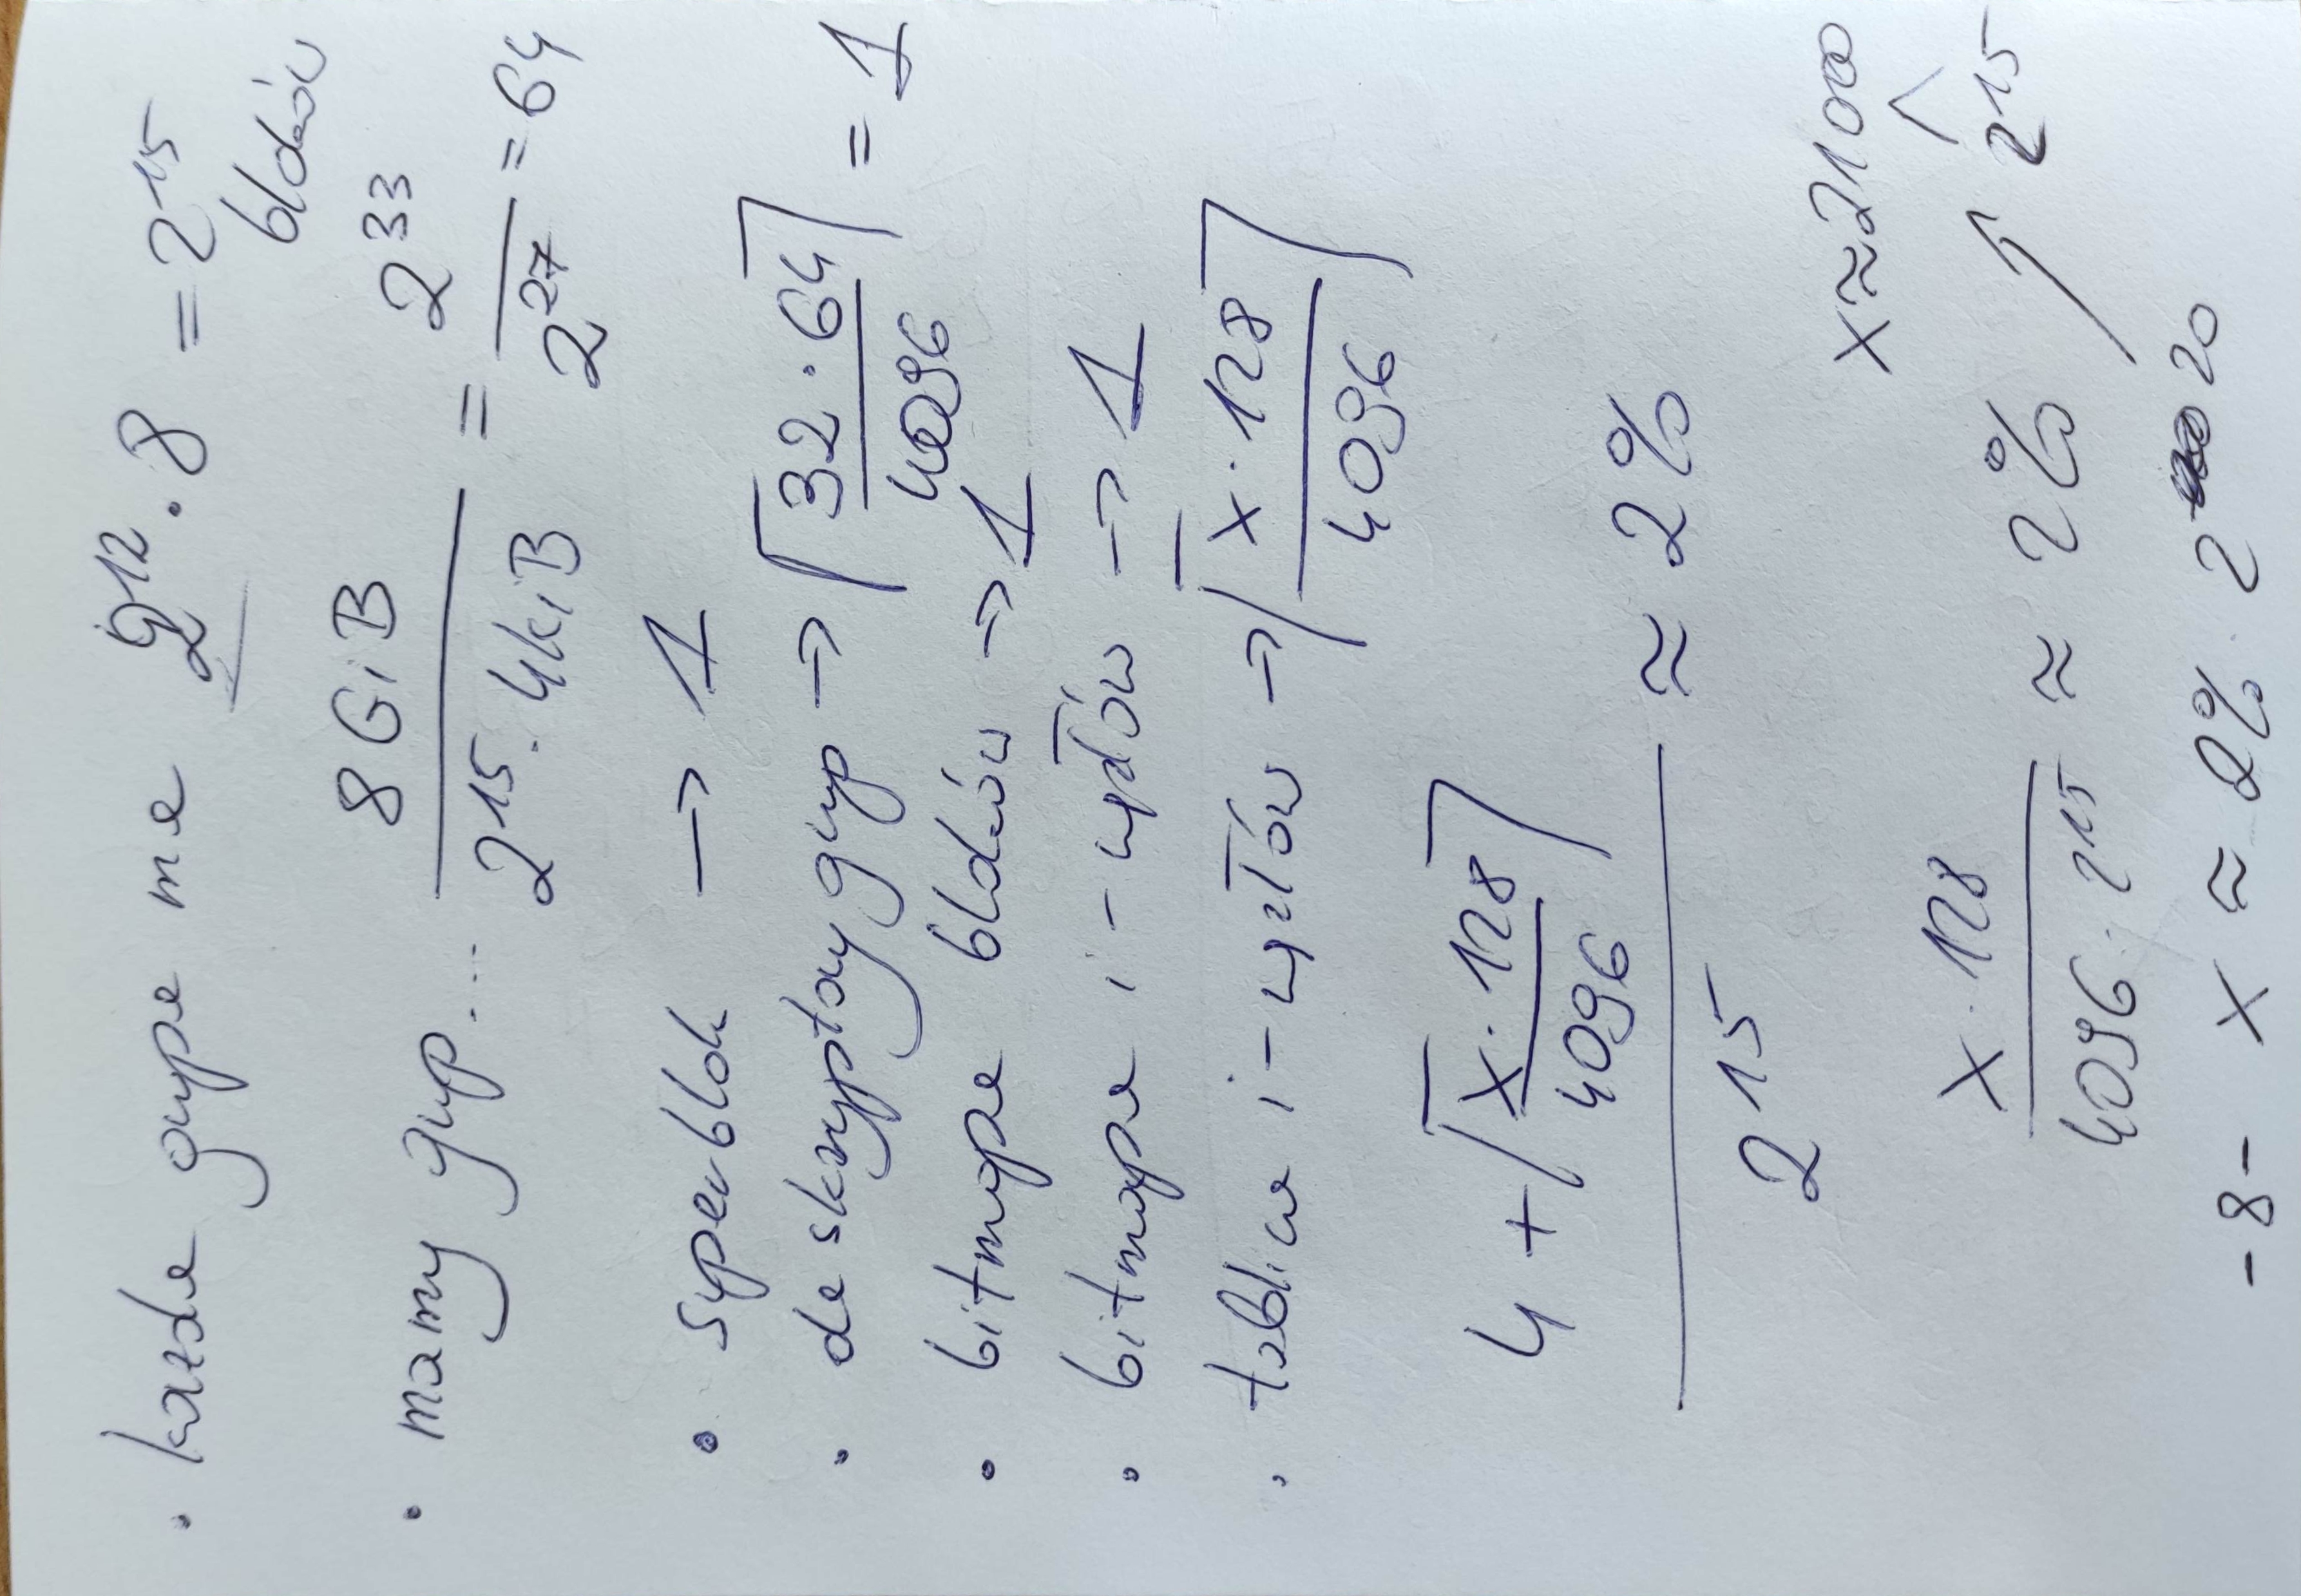 • każda grupa ma 2^12 · 8 = 2^15 bloków
• mamy grup... 8 GiB / (2^15 · 4kiB) = 2^33 / 2^27 = 64
• superblok → 1
• deskryptory grup → ⌈(32 · 64) / 4096⌉ = 1
• bitmapa bloków → 1
• bitmapa i-węzłów → 1
• tablica i-węzłów → ⌈(x · 128) / 4096⌉
(4 + ⌈(x · 128) / 4096⌉) / 2^15 ≈ 2%
x ≈ 21000
(x · 128) / (4096 · 2^15) ≈ 2% ↗ ^ 2^15
-8- x ≈ 2% · 2^20